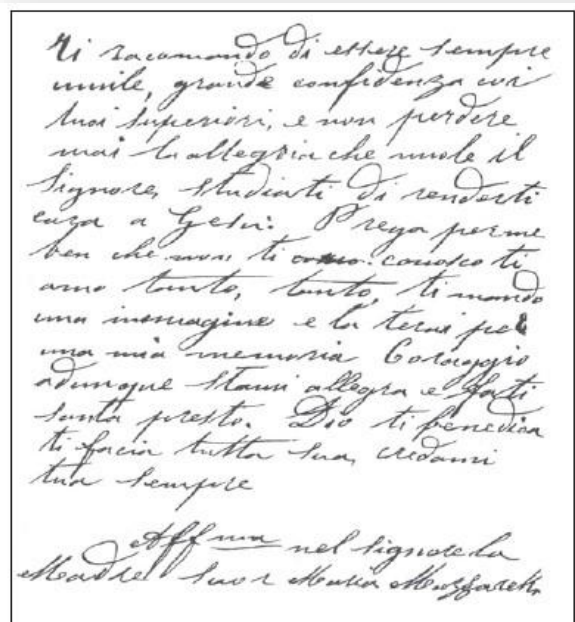 Ti racomando di essere sempre
umile, grande confidenza coi
tuoi superiori, e non perdere
mai la allegria che vuole il
Signore, studiati di renderti
cara a Gesù. Prega per me
ben che non ti conosco ti
amo tanto, tanto, ti mando
una immagine e la terai per
una mia memoria Coraggio
adunque stami allegra e fatti
santa presto. Dio ti benedica
ti facia tutta sua, credami
tua sempre
Aff ma nel Signore la
Madre Suor Maria Mazzarello